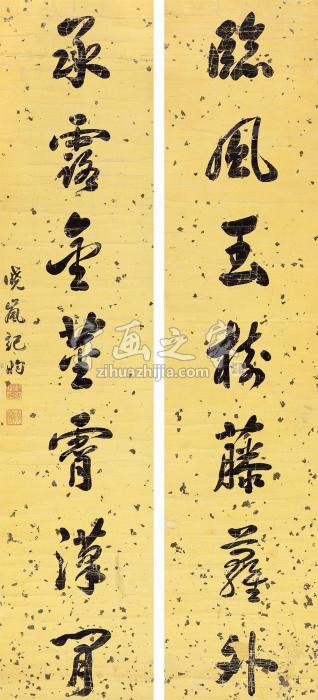 臨風玉樹藤蘿外
承露金莖霄漢間
曉嵐紀昀
字画之家
zihuazhijia.com